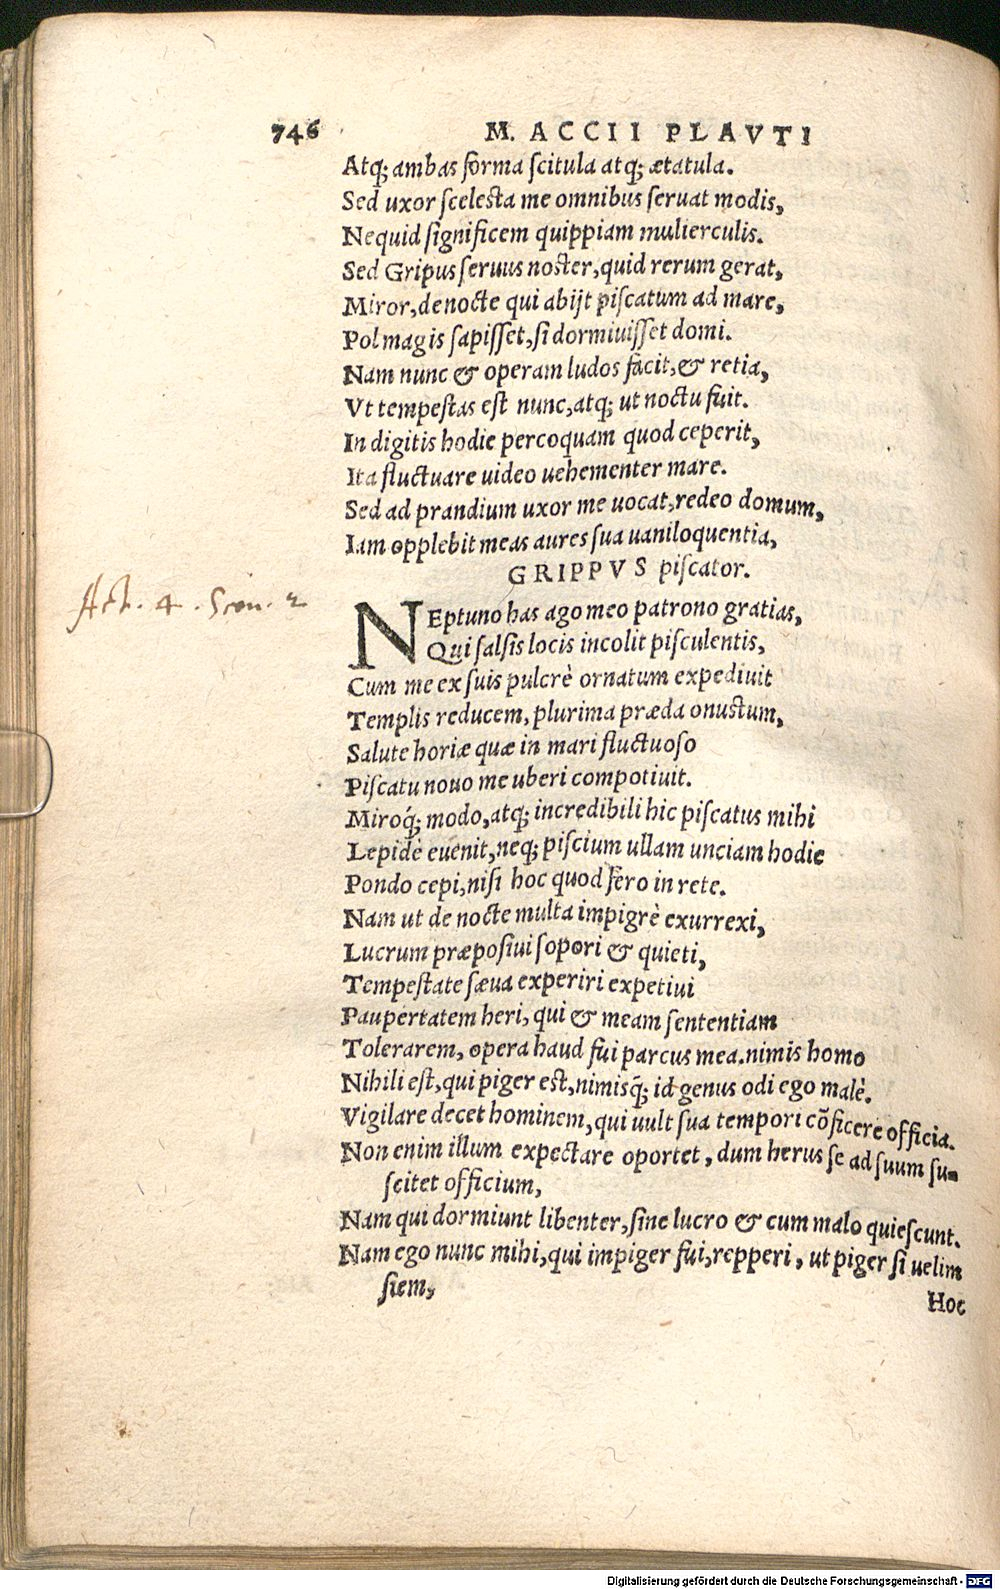 746 M. ACCII PLAVTI
Atq; ambas forma scitula atq; ætatula.
Sed uxor scelesta me omnibus seruat modis,
Nequid significem quippiam mulierculis.
Sed Gripus seruus noster, quid rerum gerat,
Miror, de nocte qui abijt piscatum ad mare,
Pol magis sapisset, si dormiuisset domi.
Nam nunc & operam ludos facit, & retia,
Vt tempestas est nunc, atq; ut noctu fuit.
In digitis hodie percoquam quod ceperit,
Ita fluctuare uideo uehementer mare.
Sed ad prandium uxor me uocat, redeo domum,
Iam opplebit meas aures sua uaniloquentia,
GRIPPVS piscator.
Act. 4. Scen. 2
NEptuno has ago meo patrono gratias,
Qui salsis locis incolit pisculentis,
Cum me ex suis pulcrè ornatum expediuit
Templis reducem, plurima præda onustum,
Salute horiæ quæ in mari fluctuoso
Piscatu nouo me uberi compotiuit.
Miroq́; modo, atq; incredibili hic piscatus mihi
Lepidè euenit, neq; piscium ullam unciam hodie
Pondo cepi, nisi hoc quod fero in rete.
Nam ut de nocte multa impigrè exurrexi,
Lucrum præposiui sopori & quieti,
Tempestate sæua experiri expetiui
Paupertatem heri, qui & meam sententiam
Tolerarem, opera haud fui parcus mea. nimis homo
Nihili est, qui piger est, nimisq̃; id genus odi ego malè.
Vigilare decet hominem, qui uult sua tempori cõficere officia.
Non enim illum expectare oportet, dum herus se ad suum su-
scitet officium,
Nam qui dormiunt libenter, sine lucro & cum malo quiescunt.
Nam ego nunc mihi, qui impiger fui, repperi, ut piger si uelim
siem,
Hoc
Digitalisierung gefördert durch die Deutsche Forschungsgemeinschaft - DFG